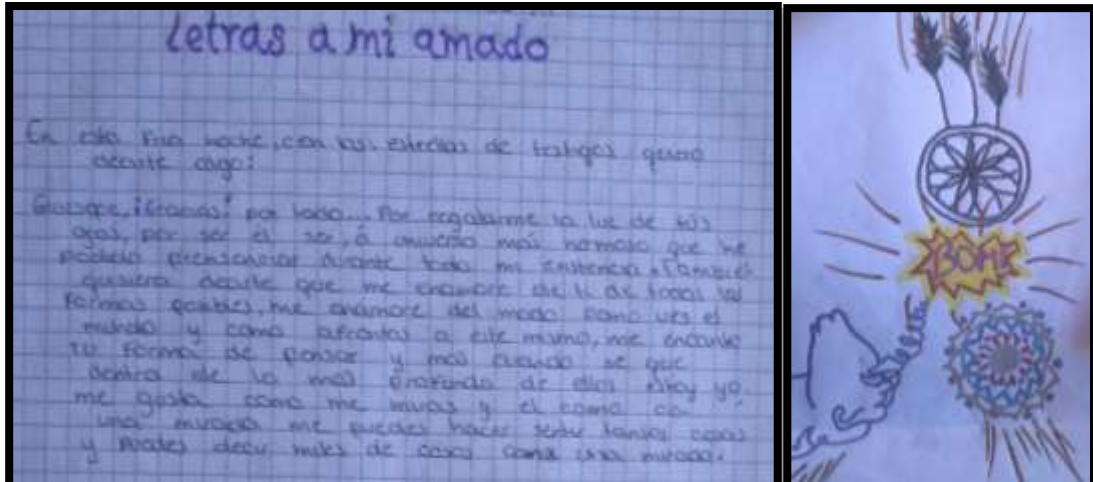 Letras a mi amado
En esta fría noche, con las estrellas de testigos quiero
decirte algo:
¡Gracias! por todo... Por regalarme la luz de tus
ojos, por ser el ser, ó universo más hermoso que he
podido presenciar durante toda mi existencia. También
quisiera decirte que me enamoré de ti de todas las
formas posibles, me enamoré del modo como ves el
mundo y como afrontas a este mismo, me encanta
tu forma de pensar y más cuando se que
dentro de lo más profundo de ellos estoy yo.
me gusta como me miras y el como co
una mirada me puedes hacer sentir tantas cosas
y puedes decir miles de cosas con una mirada.
BOM